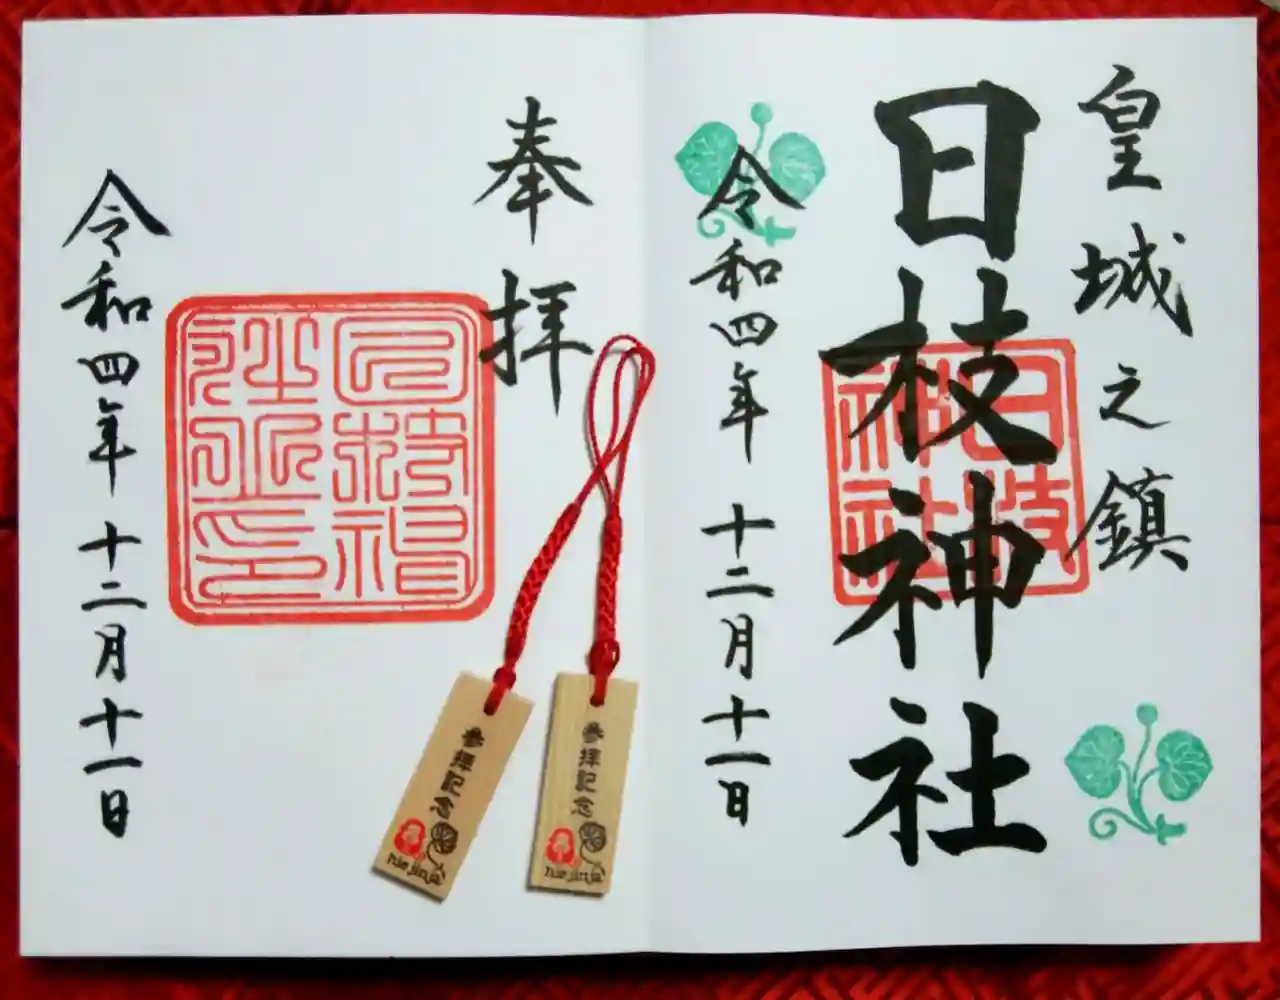 皇城之鎮
日枝神社
日枝神社
令和四年十二月十一日
奉拝
令和四年十二月十一日
参拝記念
hie jinja
参拝記念
hie jinja